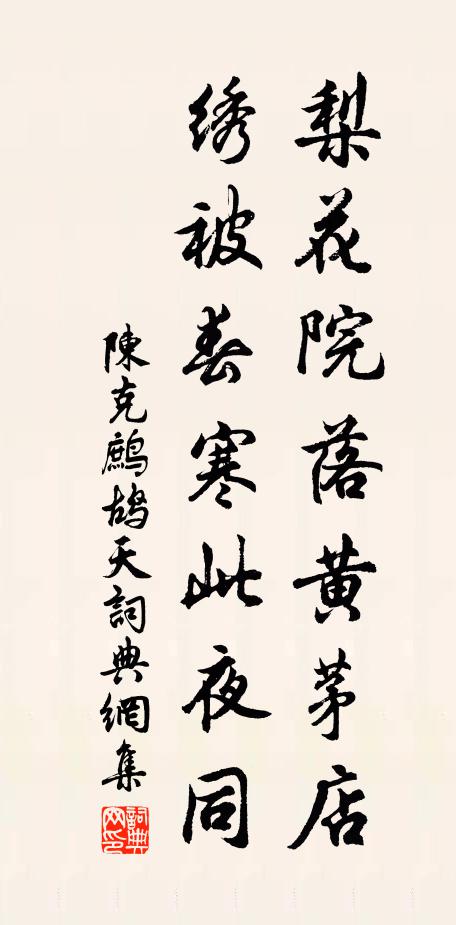 梨花院落黄茅店
绣被春寒此夜同
陳克鷓鴣天詞典網集
詞典網印